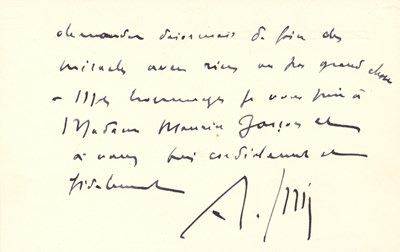 demander désormais de faire des
miracles avec rien ou pas grand chose
– Mes hommages je vous prie à
Madame Maurice Garçon et
à vous bien cordialement et
fidèlement